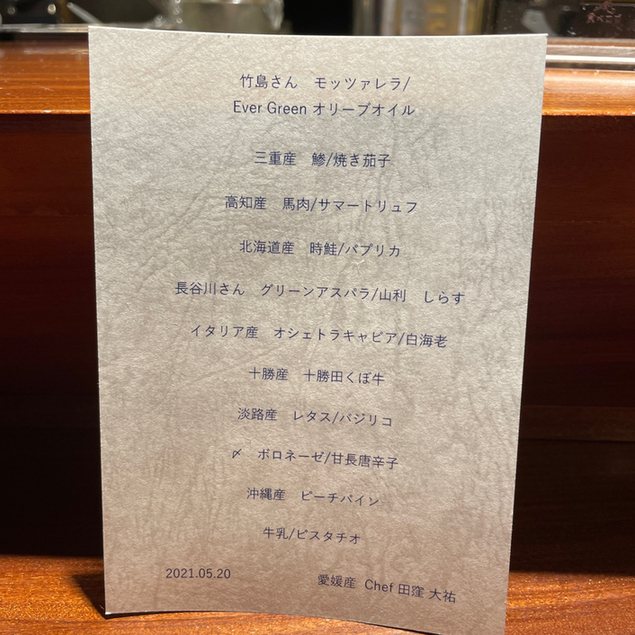 竹島さん　モッツァレラ/
Ever Green オリーブオイル
三重産　鯵/焼き茄子
高知産　馬肉/サマートリュフ
北海道産　時鮭/パプリカ
長谷川さん　グリーンアスパラ/山利　しらす
イタリア産　オシェトラキャビア/白海老
十勝産　十勝田くぼ牛
淡路産　レタス/バジリコ
〆　ボロネーゼ/甘長唐辛子
沖縄産　ピーチパイン
牛乳/ピスタチオ
2021.05.20　愛媛産 Chef 田窪 大祐